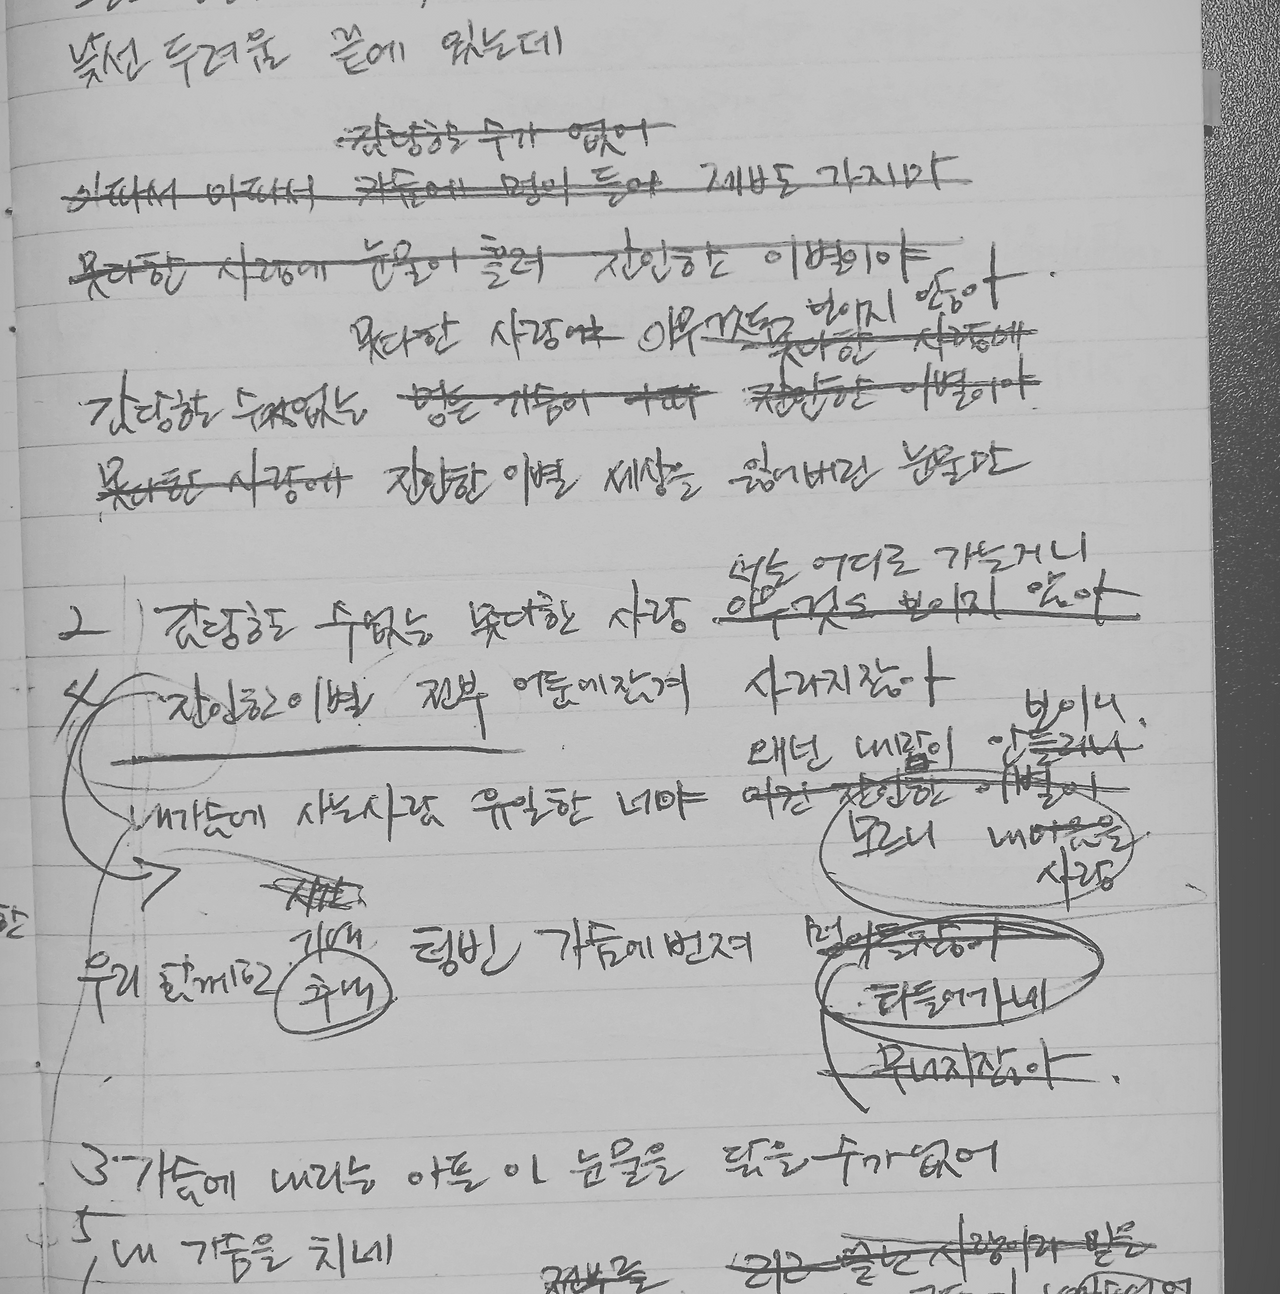 낯선 두려움 끝에 있는데
감당할 수가 없어
아파서 아파서 가슴에 멍이 들어 제발도 가지마
못다한 사랑에 눈물이 흘러 잔인한 이별이야
못다한 사랑에 아무것도 보이지 않아
못다한 사랑에
감당할 수 없는 멍든 가슴이 아파 잔인한 이별이야
못다한 사랑에 잔인한 이별 세상을 잃어버린 눈물만
너는 어디로 가는거니
2 감당할 수없는 못다한 사랑 아무것도 보이지 않아
4 잔인한 이별 전부 어둠에잠겨 사라지잖아
보이니.
왜넌 내맘이 안들리니
내가슴에 사는사람 유일한 너야 이건 잔인한 이별이
모르니 내마음을
사랑
시간
기대
우리 함께한 추억 텅빈 가슴에번져 멍이들잖아
타들어가네
무너지잖아.
3 가슴에 내리는 아픈 이 눈물을 닦을수가없어
5 내 가슴을 치네
전부를 끝난 사랑이라 말을
한